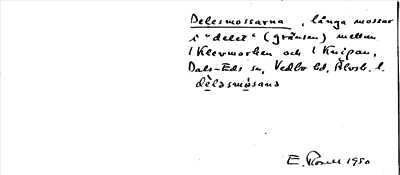 Delesmossarna, långa mossar
i "delet" (gränsen) mellan
1 Klevmarken och 1 Knipan,
Dals-Eds sn, Vedbo hd, Älvsb. l.
dèləsmòsana
E. 1950